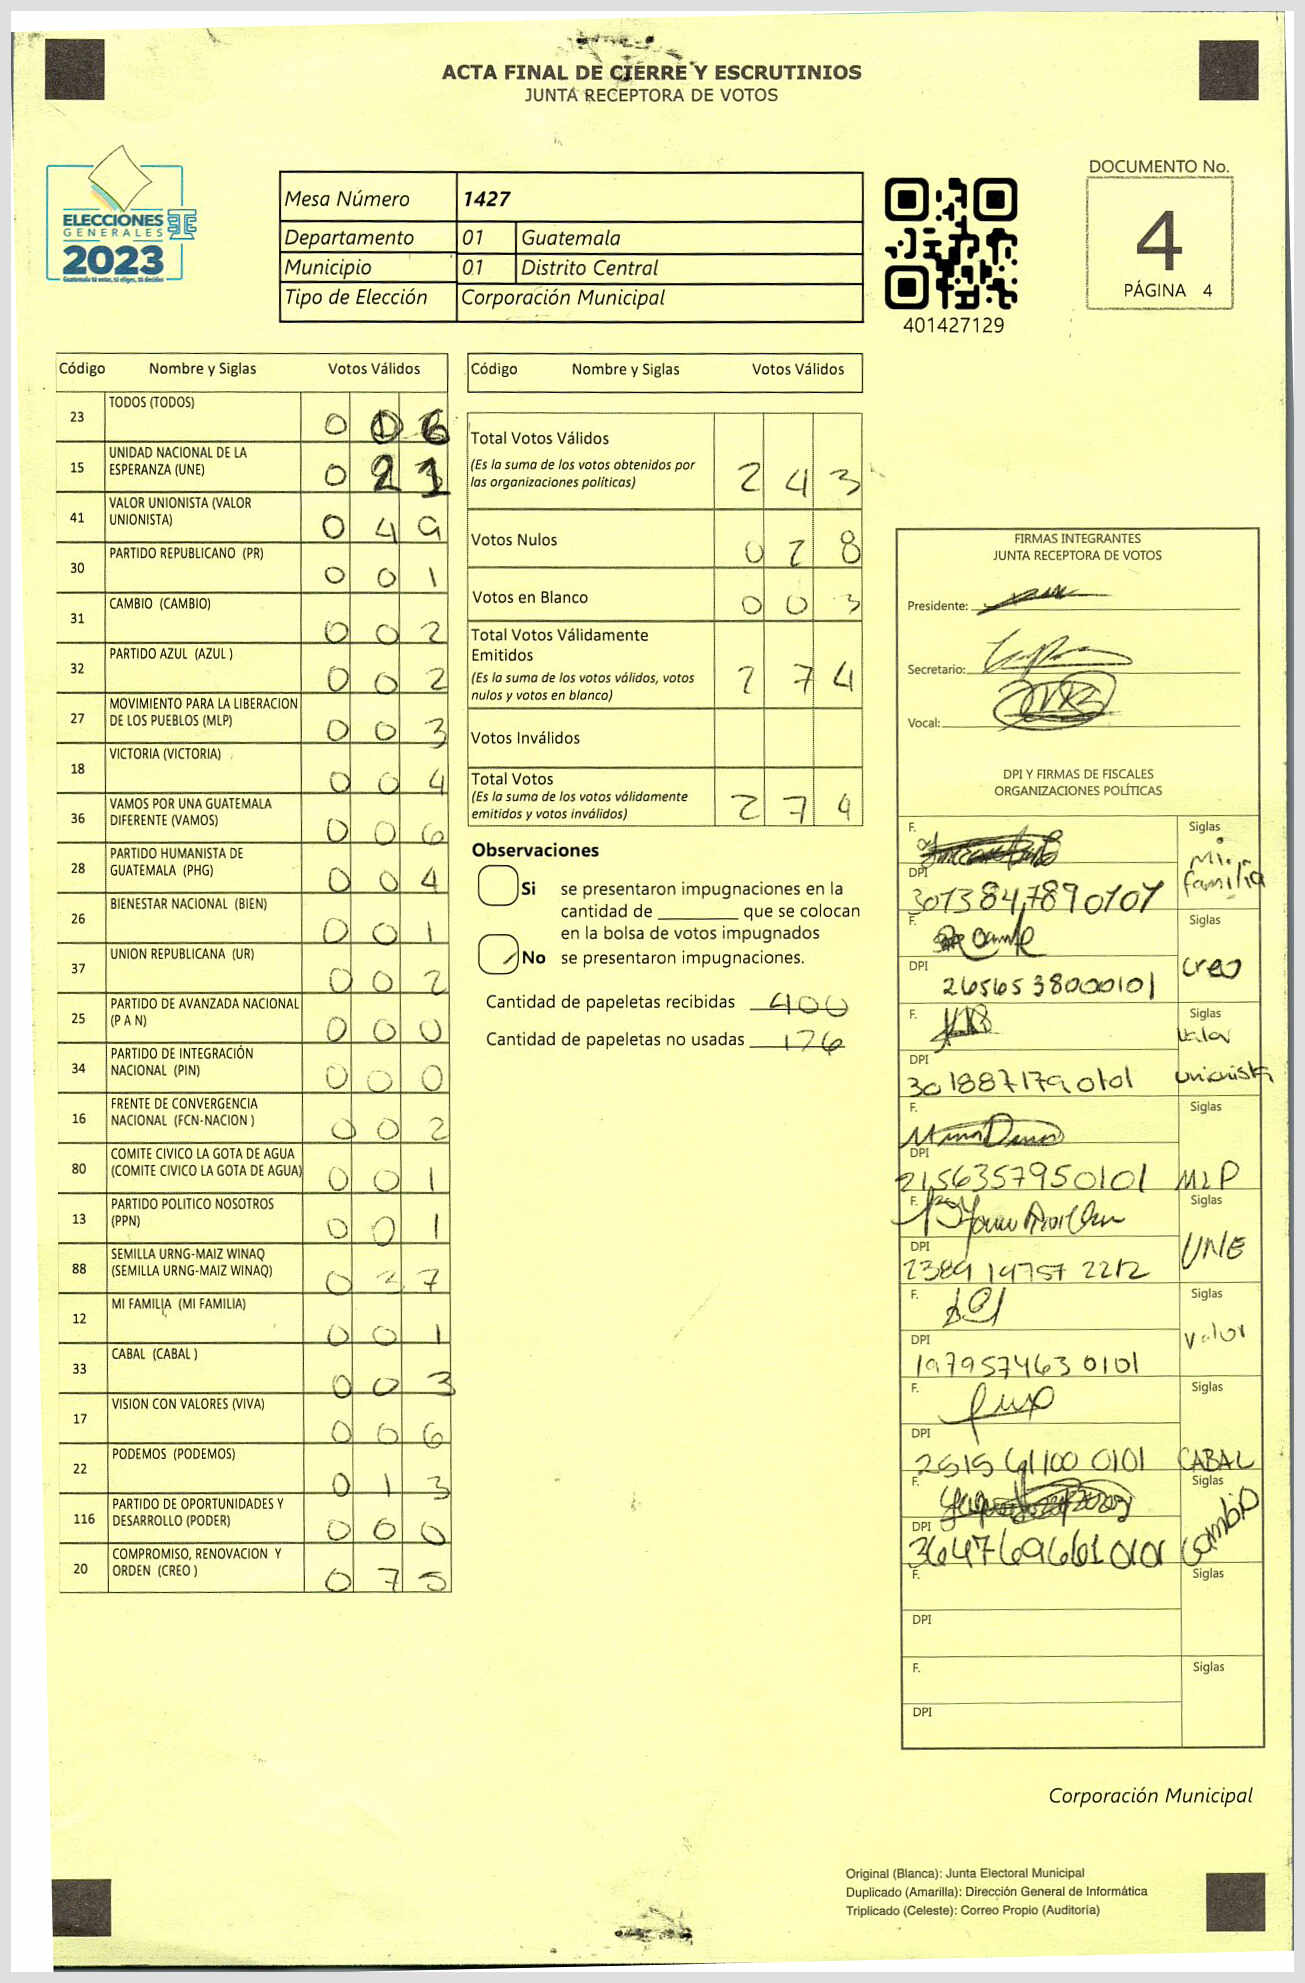 ACTA FINAL DE CIERRE Y ESCRUTINIOS
JUNTA RECEPTORA DE VOTOS
ELECCIONES
GENERALES
2023
Mesa Número 1427
Departamento 01 Guatemala
Municipio 01 Distrito Central
Tipo de Elección Corporación Municipal
401427129
DOCUMENTO No.
4
PÁGINA 4
Código Nombre y Siglas Votos Válidos
23 TODOS (TODOS) 0
15 UNIDAD NACIONAL DE LA
ESPERANZA (UNE) 0 2 1
41 VALOR UNIONISTA (VALOR
UNIONISTA) 0 4 9
30 PARTIDO REPUBLICANO (PR) 0 0 1
31 CAMBIO (CAMBIO) 0 0 2
32 PARTIDO AZUL (AZUL ) 0 0 2
27 MOVIMIENTO PARA LA LIBERACION
DE LOS PUEBLOS (MLP) 0 0 3
18 VICTORIA (VICTORIA) 0 0 4
36 VAMOS POR UNA GUATEMALA
DIFERENTE (VAMOS) 0 0 6
28 PARTIDO HUMANISTA DE
GUATEMALA (PHG) 0 0 4
26 BIENESTAR NACIONAL (BIEN) 0 0 1
37 UNION REPUBLICANA (UR) 0 0 2
25 PARTIDO DE AVANZADA NACIONAL
(P A N) 0 0 0
34 PARTIDO DE INTEGRACIÓN
NACIONAL (PIN) 0 0 0
16 FRENTE DE CONVERGENCIA
NACIONAL (FCN-NACION ) 0 0 2
80 COMITE CIVICO LA GOTA DE AGUA
(COMITE CIVICO LA GOTA DE AGUA) 0 0 1
13 PARTIDO POLITICO NOSOTROS
(PPN) 0 0 1
88 SEMILLA URNG-MAIZ WINAQ
(SEMILLA URNG-MAIZ WINAQ) 0 2 7
12 MI FAMILIA (MI FAMILIA) 0 0 1
33 CABAL (CABAL ) 0 0 3
17 VISION CON VALORES (VIVA) 0 0 6
22 PODEMOS (PODEMOS) 0 1 3
116 PARTIDO DE OPORTUNIDADES Y
DESARROLLO (PODER) 0 0 0
20 COMPROMISO, RENOVACION Y
ORDEN (CREO ) 0 7 5
Código Nombre y Siglas Votos Válidos
Total Votos Válidos
(Es la suma de los votos obtenidos por
las organizaciones políticas) 2 4 3
Votos Nulos 0 2 8
Votos en Blanco 0 0 3
Total Votos Válidamente
Emitidos
(Es la suma de los votos válidos, votos
nulos y votos en blanco) 2 7 4
Votos Inválidos
Total Votos
(Es la suma de los votos válidamente
emitidos y votos inválidos) 2 7 4
Observaciones
Si se presentaron impugnaciones en la
cantidad de ________ que se colocan
en la bolsa de votos impugnados
No se presentaron impugnaciones.
Cantidad de papeletas recibidas 400
Cantidad de papeletas no usadas 126
FIRMAS INTEGRANTES
JUNTA RECEPTORA DE VOTOS
Presidente:
Secretario:
Vocal:
DPI Y FIRMAS DE FISCALES
ORGANIZACIONES POLÍTICAS
F. Siglas
Mi
familia
DPI
F. Siglas
DPI Creo
2656538000101
F. Siglas
Valor
DPI Unionista
3018871790101
F. Siglas
DPI
2156357950101 MLP
F. Siglas
DPI UNE
2389 19757 2212
F. Siglas
DPI Valor
1979574630101
F. Siglas
DPI
CABAL
F. Siglas
DPI Cambio
3647696610101
F. Siglas
DPI
F. Siglas
DPI
Corporación Municipal
Original (Blanca): Junta Electoral Municipal
Duplicado (Amarilla): Dirección General de Informática
Triplicado (Celeste): Correo Propio (Auditoría)